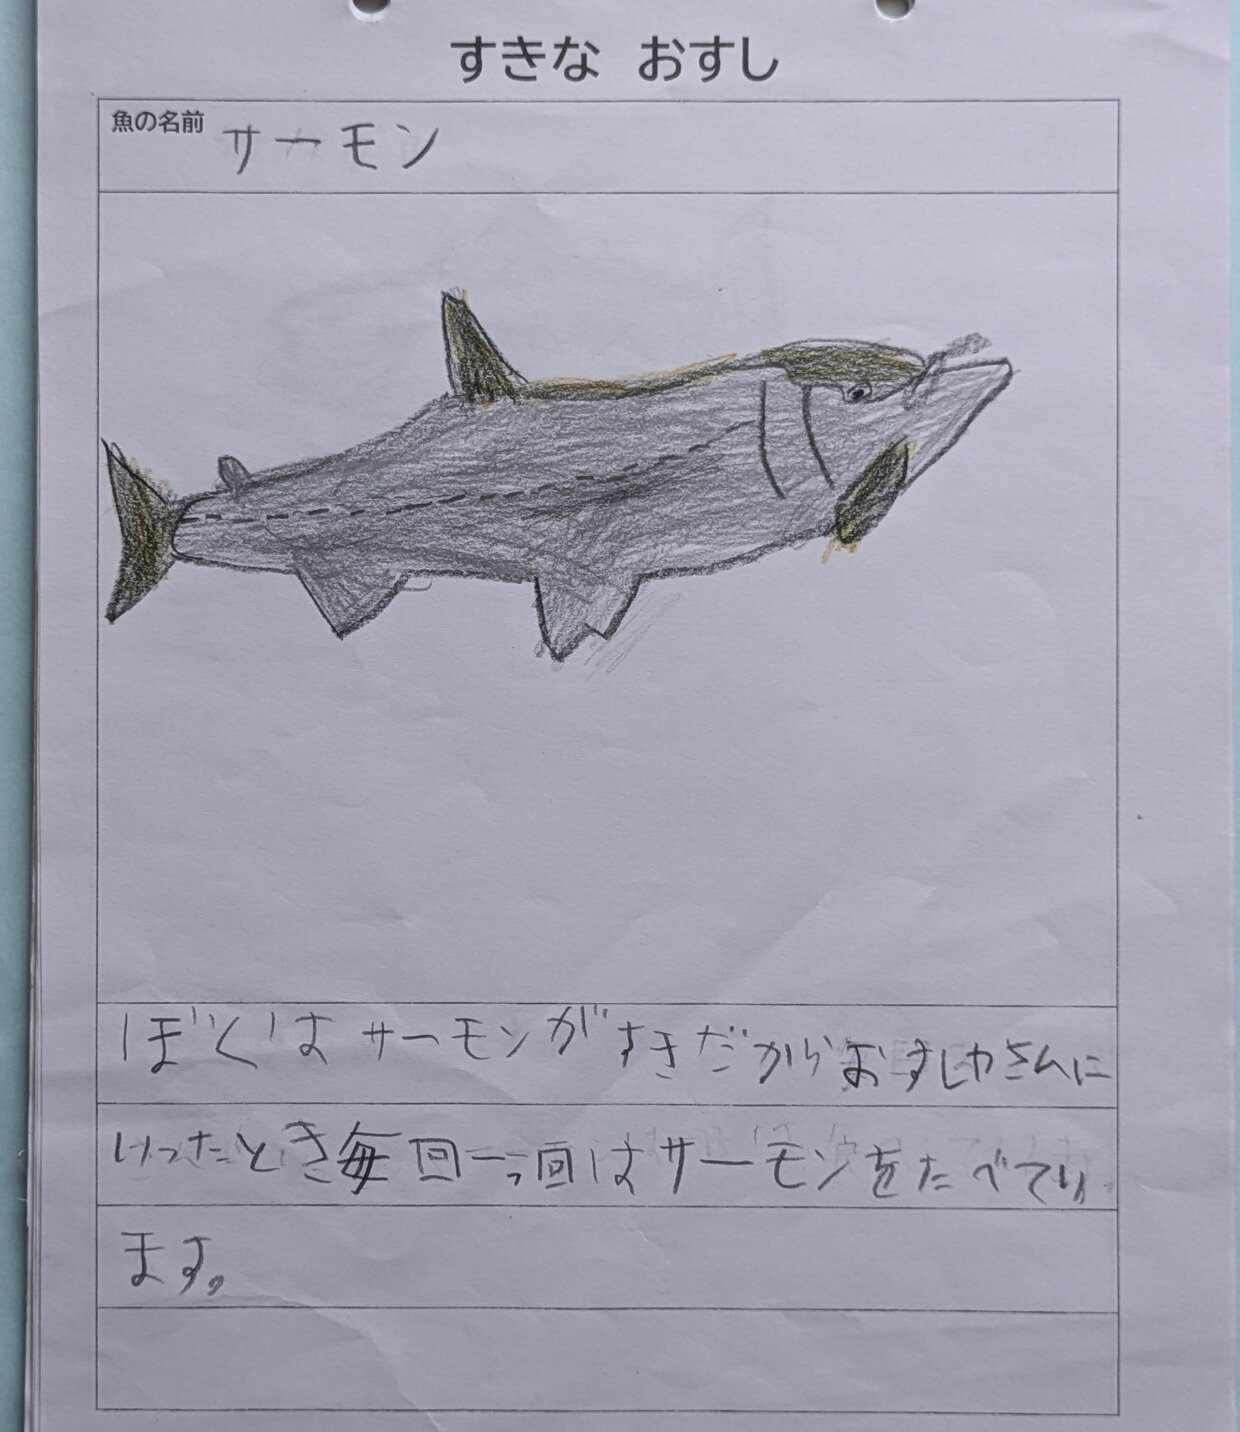 すきな おすし
魚の名前
サーモン
ぼくはサーモンがすきだからおすしやさんに
いったとき毎回一っ回はサーモンをたべてい
ます。